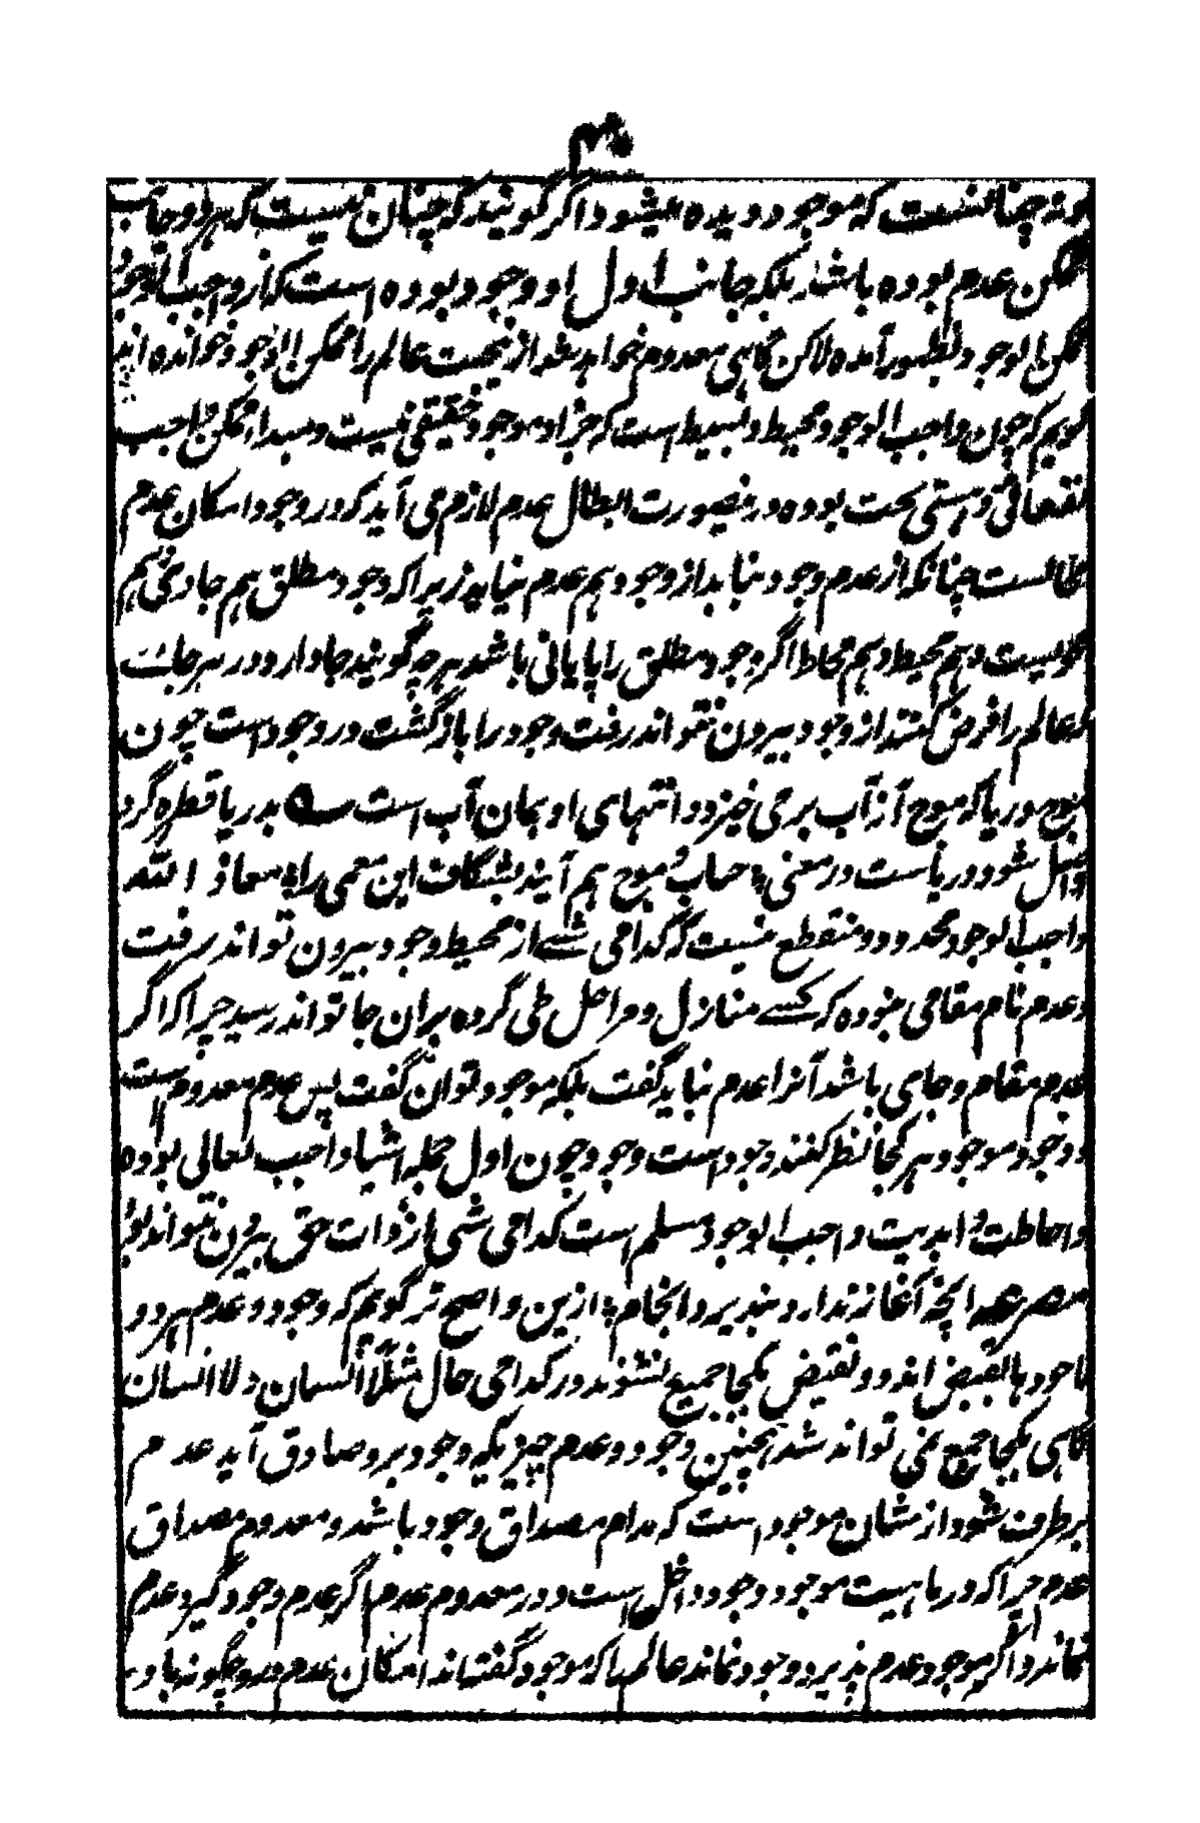 چنانست که موجود دیده میشود و اگر گویند که چنان نیست که هر دو جانب
ممکن عدم بوده باشد بلکه جانب اول او وجود بوده است که از واجب الوجود
ممکن الوجود بظهور آمده لاکن گاهی معدوم نخواهد شد ازین جهت عالم را ممکن الوجود خوانده اند
گویم که چون واجب الوجود محیط و بسیط است که جز او موجود حقیقی نیست و مبداء ممکن واجب
تعالی و هستی بحت بوده درینصورت ابطال عدم لازم می آید که در وجود امکان عدم
چنانکه از عدم وجود نیاید از وجود هم عدم نیاید زیرا که وجود مطلق هم حاوی هم
محویست و هم محیط و هم محاط اگر وجود مطلق را پایانی باشد هر چه گویند جا دارد و در هر جانب
که عالم را فرض کنند از وجود بیرون نتواند رفت وجود را بازگشت در وجود است چون
موج دریا که موج از آب برمی خیزد و انتهای او بهمان آب است ــه بدریا قطره گردد
واصل شود دریاست در معنی ؛ حباب و موج هم آیند بشگاف این معمی را ؛ معاذ الله
واجب الوجود محدود و منقطع نیست که کدامی شے از محیط وجود بیرون تواند رفت
و عدم نام مقامی نبوده که کسے منازل و مراحل طی کرده بران جا تواند رسید چرا که اگر
عدم مقام و جای باشد آنرا عدم نباید گفت بلکه موجود توان گفت پس عدم معدوم است
و وجود موجود هر کجا نظر کنند وجود است و وجود چون اول جمله اشیا واجب تعالی بوده
و احاطت و ابدیت واجب الوجود مسلم است کدامی شی از ذات حق بیرون نتواند بود
مصرعه آنچه آغاز ندارد نپذیرد انجام ؛ ازین واضح تر گویم که وجود و عدم هر دو
باخود ها نقیض اند و دو نقیض یکجا جمیع نشوند در کدامی حال مثلاً انسان و لا انسان
گاهی یکجا جمع نمی تواند شد همچنین وجود و عدم چیزیکه وجود برو صادق آید عدم
برطرف شود از شان موجود است که مدام مصداق وجود باشد و معدوم مصداق
عدم چرا که در ماهیت موجود وجود داخل است و در معدوم عدم اگر عدم وجود گیرد عدم
نماند و اگر موجود عدم پذیرد وجود نماند عالم را که موجود گفته اند امکان عدم درو چگونه باور